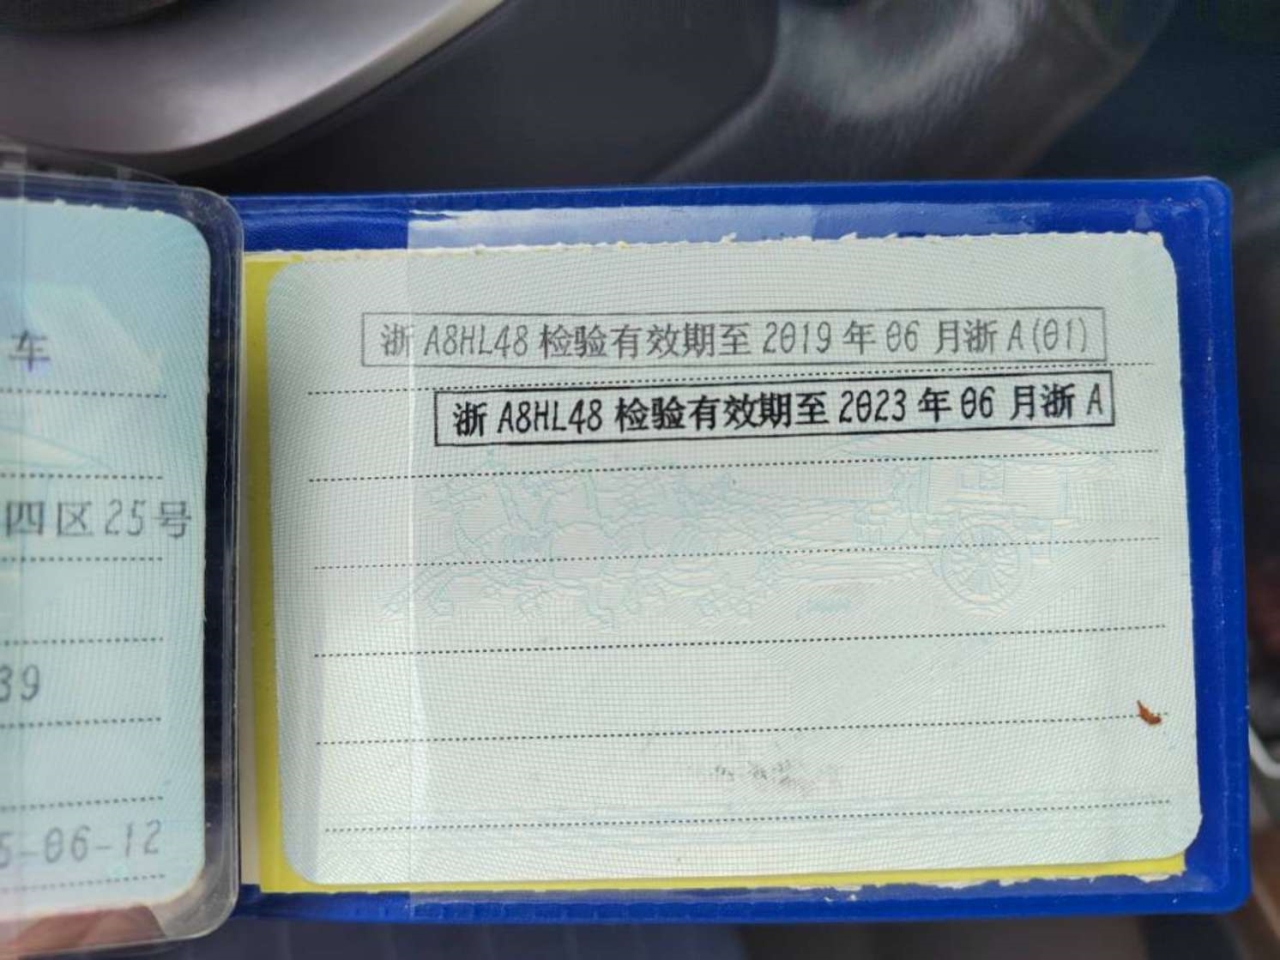 车
四区25号
39
5-06-12
浙A8HL48检验有效期至2019年06月浙A(01)
浙A8HL48检验有效期至2023年06月浙A